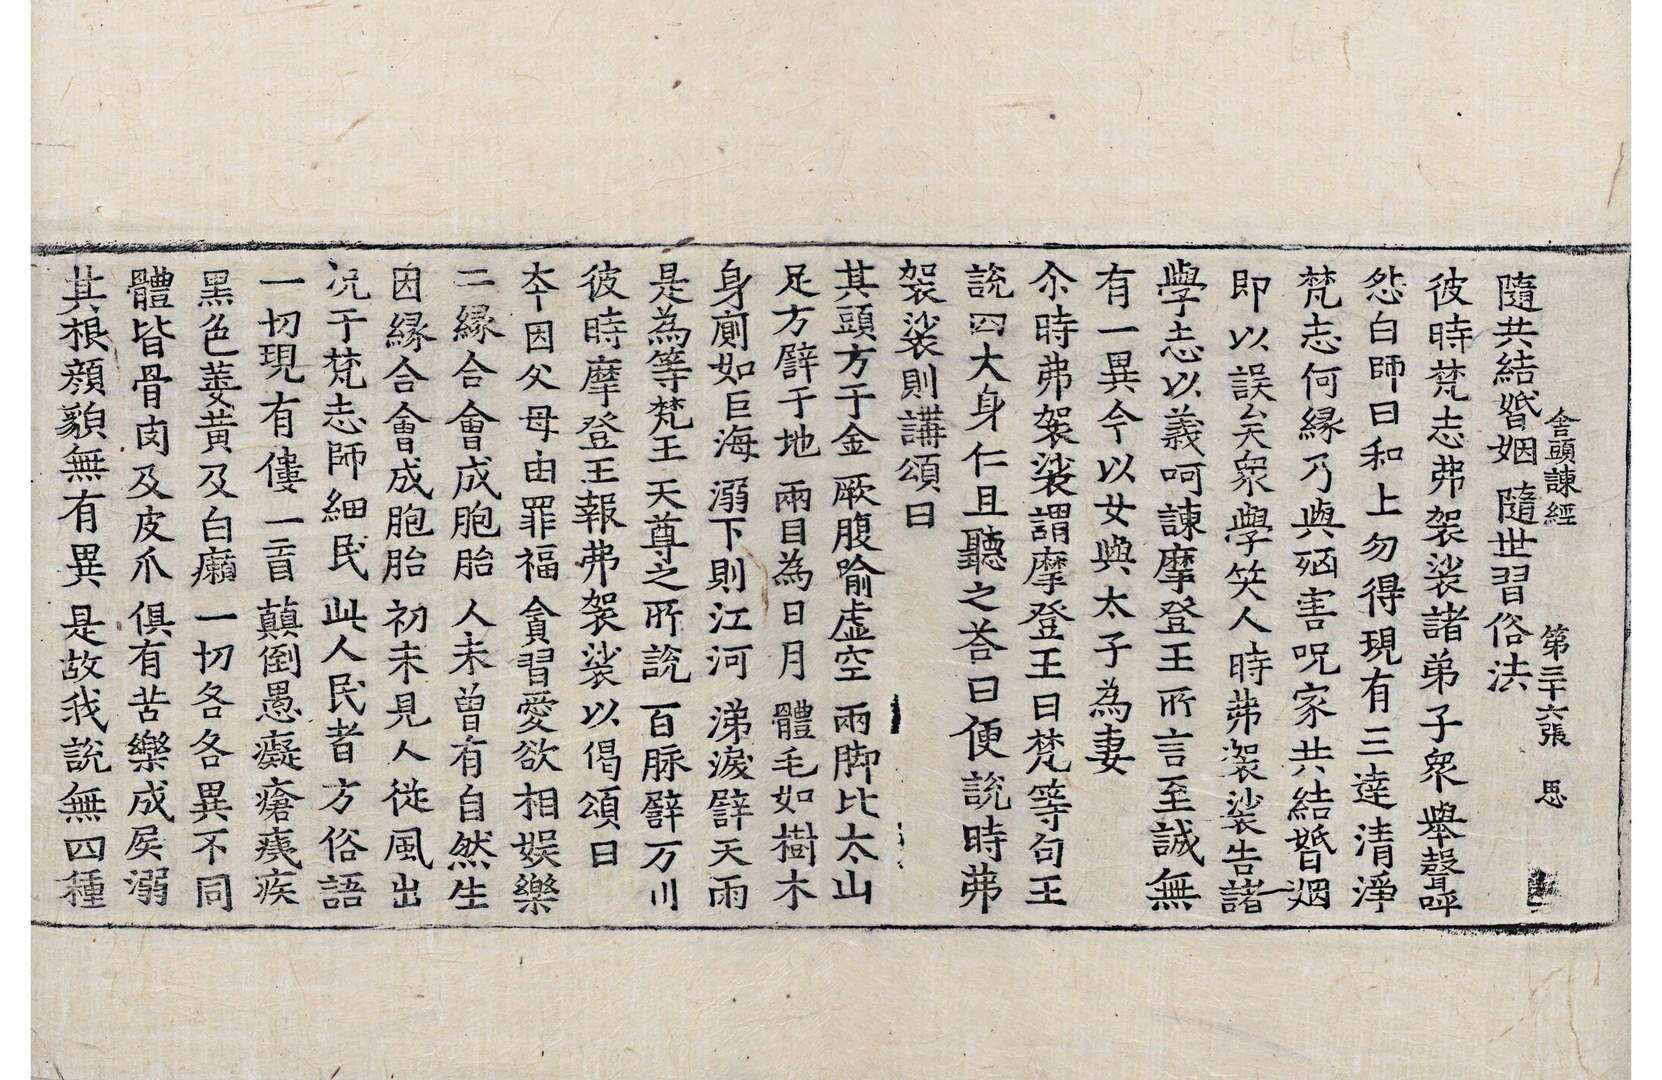 舎頭諫經　第三十六張　思
隨共結婚姻　隨世習俗法
彼時梵志弗袈裟諸弟子衆舉聲呼
怨白師曰和上勿得現有三達清淨
梵志何緣乃與㐫害呪家共結婚姻
即以誤矣衆學笑人時弗袈裟告諸
學志以義呵諫摩登王所言至誠無
有一異今以女與太子為妻
尒時弗袈裟謂摩登王曰梵等句王
說四大身仁且聽之荅曰便說時弗
袈裟則講頌曰
其頭方于金　厥腹喻虛空　兩脚比太山
足方譬于地　兩目為日月　體毛如樹木
身廁如巨海　溺下則江河　涕淚譬天雨
是為等梵王　天尊之所說　百脉譬万川
彼時摩登王報弗袈裟以偈頌曰
夲因父母由罪福　貪習愛欲相娛樂
二緣合會成胞胎　人未曾有自然生
因緣合會成胞胎　初未見人從風出
况于梵志師細民　此人民者方俗語
一切現有僂一盲　顛倒愚癡瘡痍疾
黑色萎黃及白癩　一切各各異不同
體皆骨肉及皮爪　俱有苦樂成屎溺
其根顏貌無有異　是故我說無四種